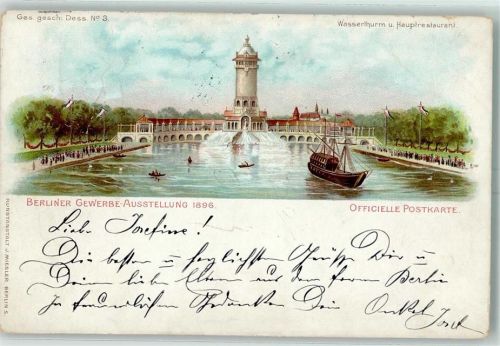 Ges. gesch. Dess. No 3.
Wasserthurm u. Hauptrestaurant.
BERLINER GEWERBE-AUSSTELLUNG 1896.
OFFICIELLE POSTKARTE.
KUNSTANSTALT J. MIESLER, BERLIN S.
Liebe Josefine!
Die besten u herzlichsten Grüße Dir u
Deinen lieben Eltern aus dem fernen Berlin
In freundlichem Gedenken Dein Onkel
Josef